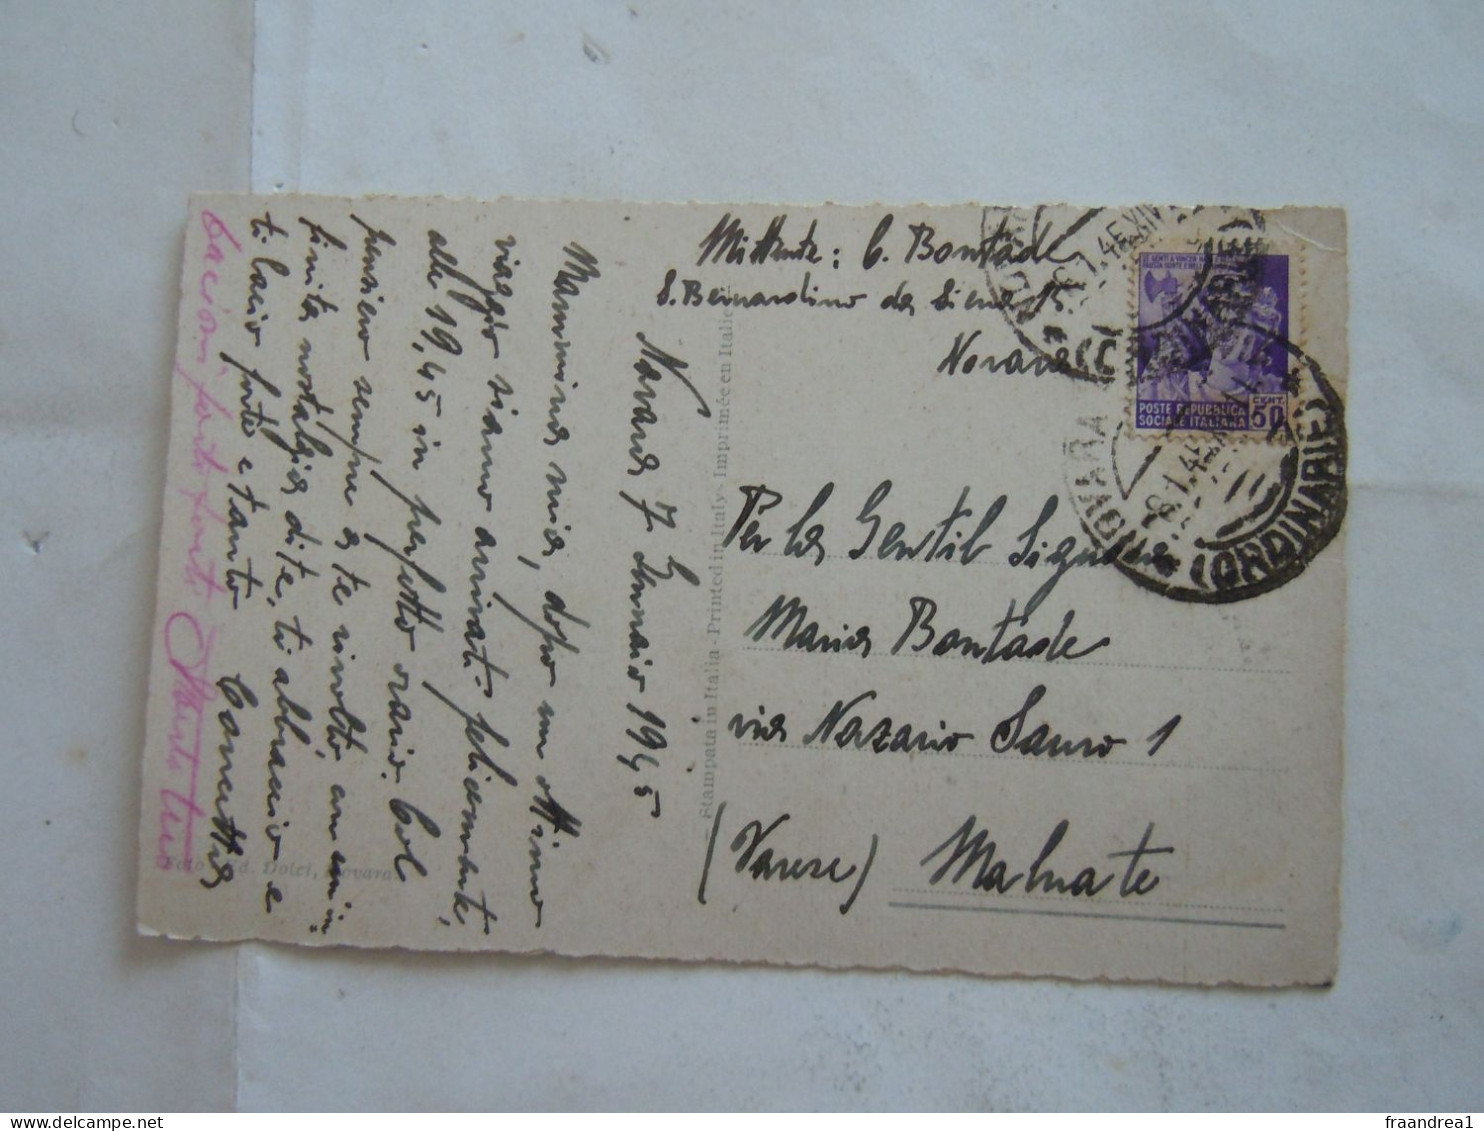 Mittente: C. Bontade
S. Bernardino da Siena 15
Novara
Novara 7 Gennaio 1945
Mammina mia, dopo un ottimo
viaggio siamo arrivati felicemente,
alle 19,45 in perfetto orario. Col
pensiero sempre a te rivolto, con un in
finita nostalgia di te, ti abbraccio e
ti bacio forte e tanto
bacioni forti forti
Stampata in Italia - Printed in Italy - Imprimée en Italie
Ed. Dolci, Novara
POSTE REPUBBLICA
SOCIALE ITALIANA
CENT.
50
NOVARA
(ORDINARIE)
Per la Gentil Signora
Maria Bontade
via Nazario Sauro 1
(Varese) Malnate
fraandrea1